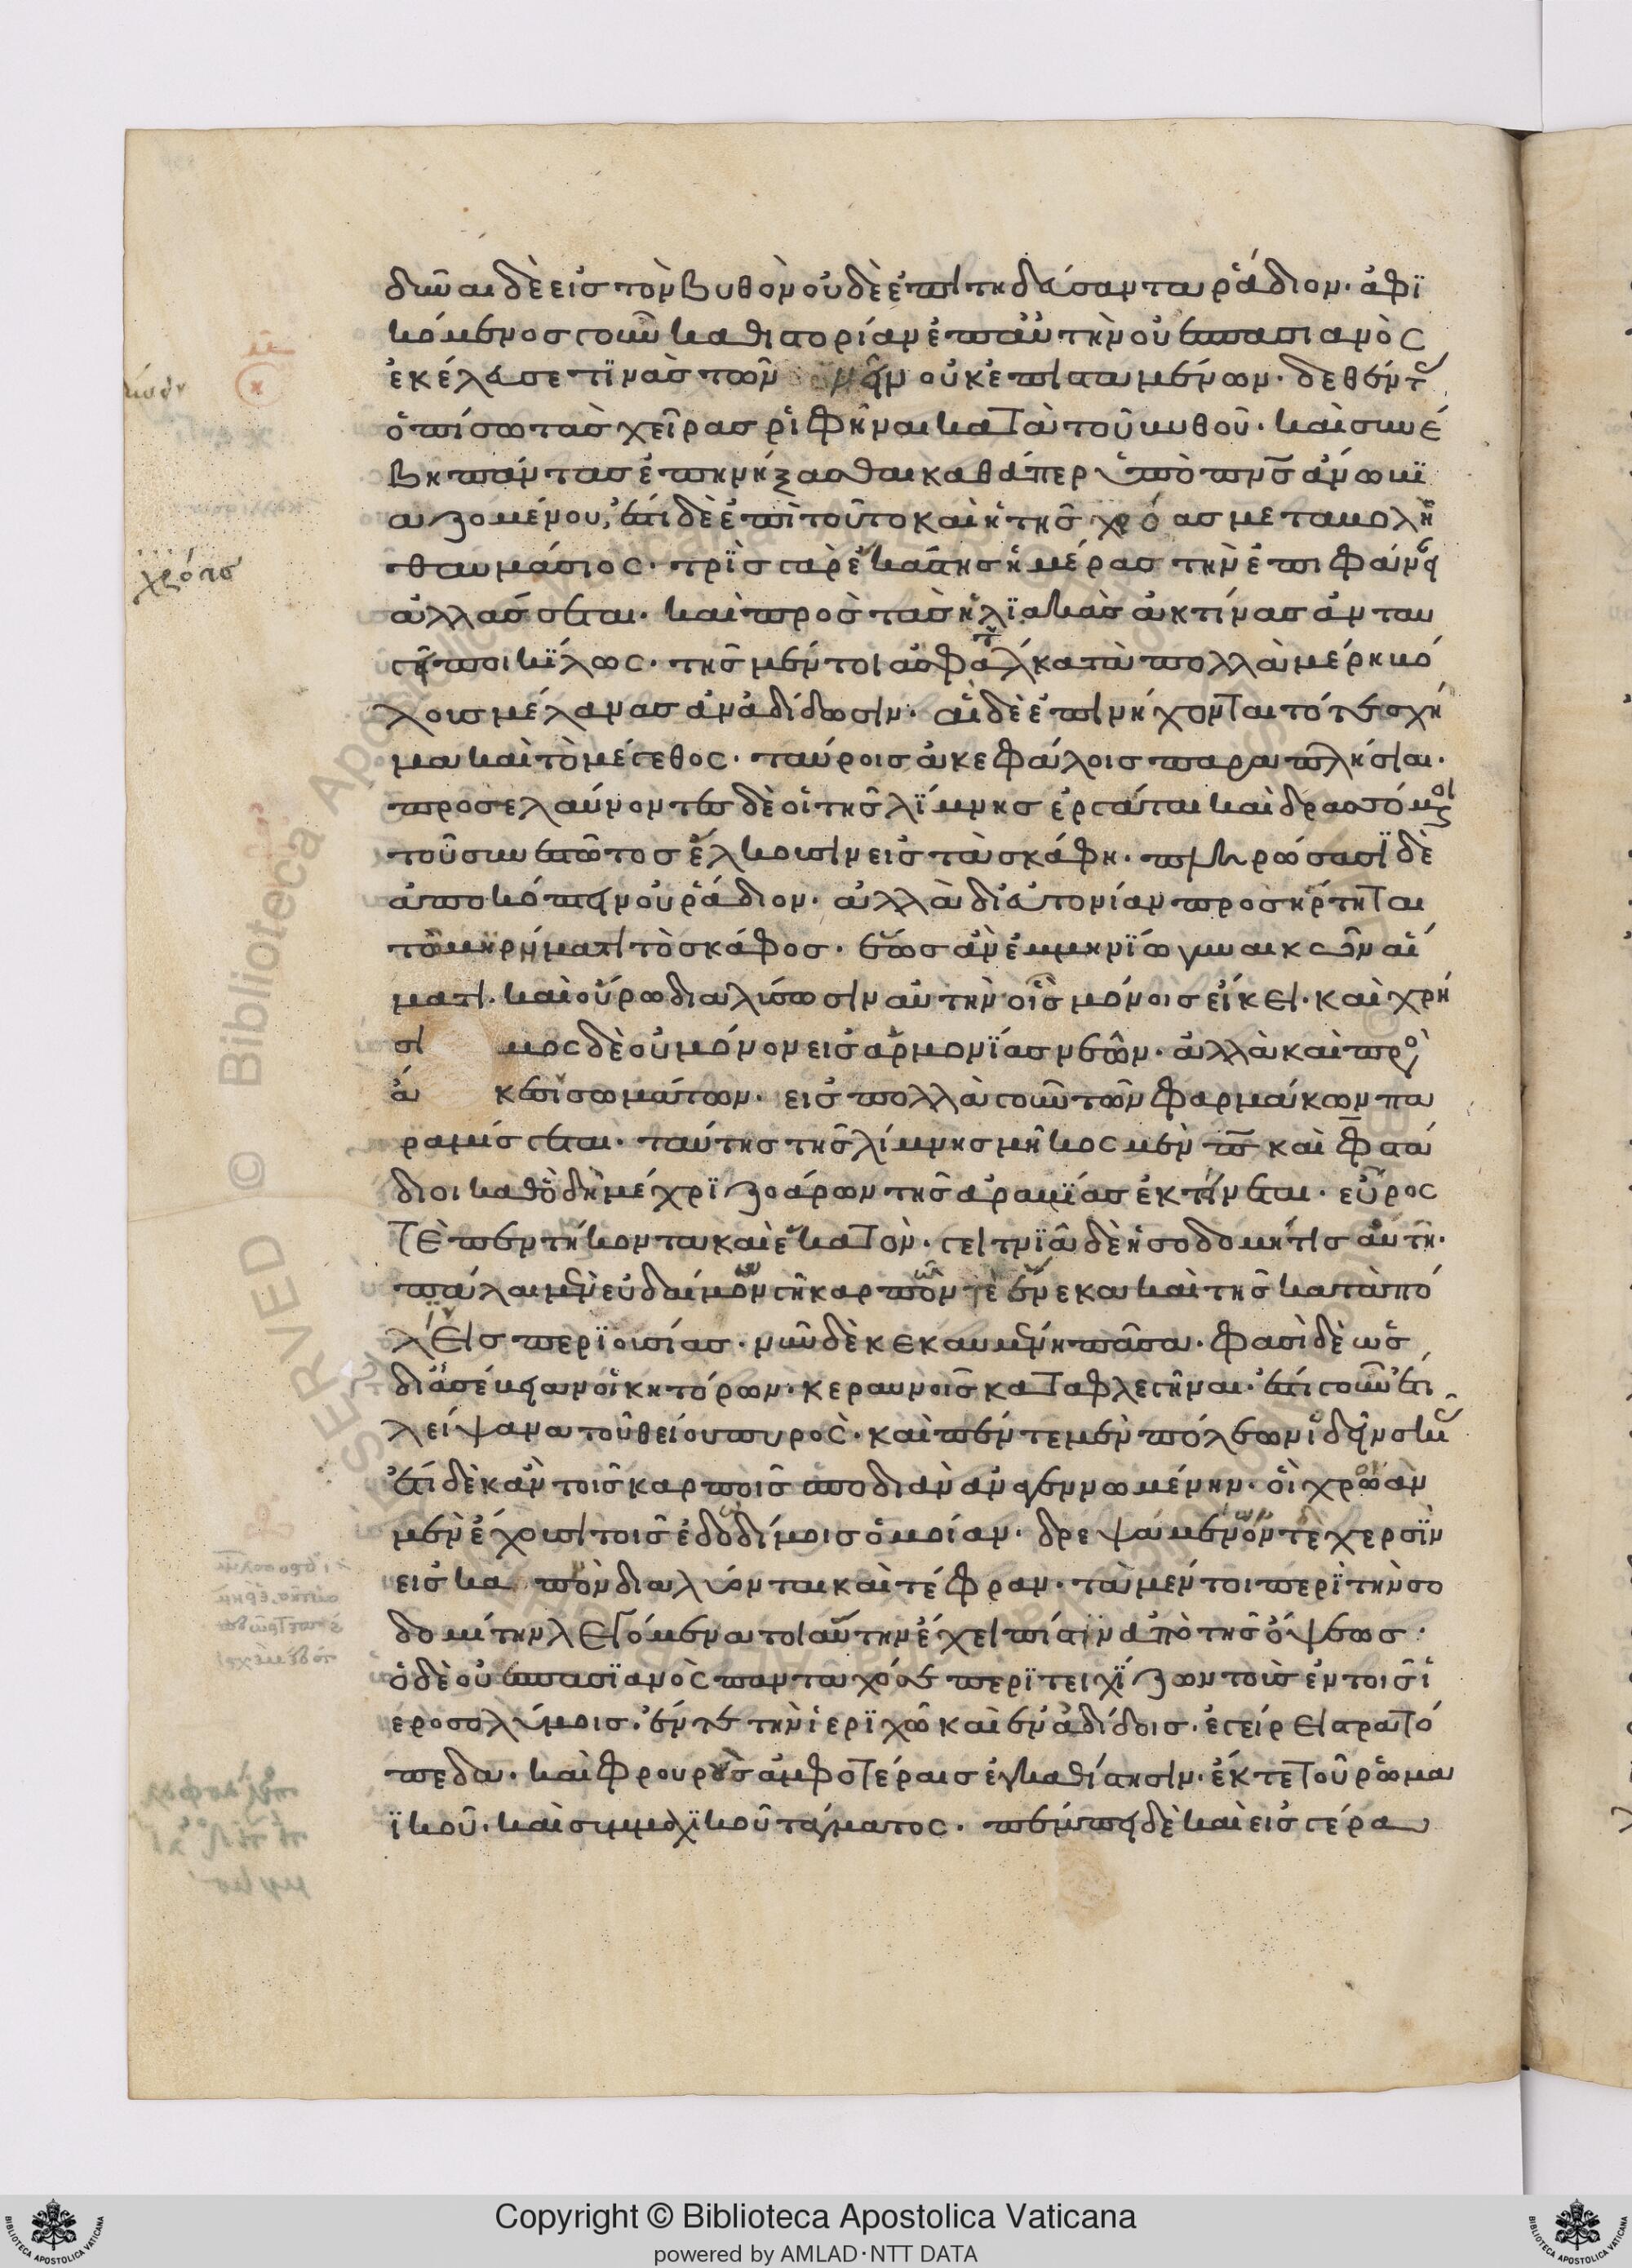 δῦναι δὲ εἰς τὸν βυθὸν οὐδὲ ἐπιτηδεύσαντα ῥάδιον· ἀφϊ
κόμενος γοῦν καθ ἱστορίαν ἐπ αὐτὴν οὐεσπασιανὸς
ἐκέλευσε τϊνὰς τῶν νεῖν οὐκ ἐπισταμένων· δεθέντ
ὀπίσω τὰς χεῖρας ῥιφῆναι κατὰ τοῦ βυθοῦ· καὶ συνέ
βη πάντας ἐπινήξασθαι καθάπερ ὑπὸ πνς ἄνω βϊ
αζομένου, ἔτι δὲ ἐπὶ τοῦτο καὶ ἡ τῆς χρόας μεταβολὴ
θαυμάσιος· τρὶς γὰρ ἑκάστης ἡμέρας τὴν ἐπιφάνει
ἀλλάσσεται· καὶ πρὸς τὰς ἡλϊακὰς ἀκτίνας ἀνταυ
γεῖ ποικίλως· τῆς μέντοι ἀσφάλτ κατὰ πολλὰ μέρη βώ
λους μέλανας ἀναδίδωσιν· αἱ δὲ ἐπινήχονται τό τε σχῆ
μα καὶ τὸ μέγεθος· ταύροις ἀκεφάλοις παραπλήσιαι·
προσελαύνοντες δὲ οἱ τῆς λίμνης ἐργάται καὶ δρασσόμενοι
τοῦ συνεστῶτος ἕλκουσιν εἰς τὰ σκάφη· πληρώσασι δὲ
ἀποκόπτειν οὐ ῥάδιον· ἀλλὰ δι εὐτονίαν προσήρτηται
τῷ μηρύματι τὸ σκάφος· ἕως ἂν ἐμμηνΐω γυναικῶν αἵ
ματι· καὶ οὔρω διαλύσωσιν αὐτὴν οἷς μόνοις εἴκει· καὶ χρή
σι μος δὲ οὐ μόνον εἰς ἁρμονΐας νεῶν· ἀλλὰ καὶ πρὸ
ἄ κεσι σωμάτων· εἰς πολλὰ γοῦν τῶν φαρμάκων πα
ραμίσγεται· ταύτης τῆς λίμνης μῆκος μὲν π καὶ φ στά
διοι καθὸ δὴ μέχρι ζοάρων τῆς ἀραβίας ἐκτείνεται· εὖρος
τὲ πεντήκοντα καὶ ἑκατὸν· γειτνιᾶ δὲ ἡ σοδομῖτις αὐτῆ·
πάλαι μὲν εὐδαίμων γῆ καρπῶν τὲ ἕνεκα καὶ τῆς κατὰ πό
λεις περϊουσίας· νῦν δὲ κεκαυμένη πᾶσα· φασὶ δὲ ὡς
δι ἀσέβειαν οἰκητόρων· κεραυνοῖς καταφλεγῆναι· ἔστι γοῦν ἔτι
λείψανα τοῦ θείου πυρὸς· καὶ πέντε μὲν πόλεων ἰδεῖν σκι
ἔτι δὲ κἂν τοῖς καρποῖς σποδιὰν ἀναγεννωμένην· οἳ χροιὰν
μὲν ἔχουσι τοῖς ἐδωδίμοις ὁμοίαν· δρεψαμένων τὲ χερσὶν
εἰς κα πνὸν διαλύονται καὶ τέφραν· τὰ μέντοι περὶ τὴν σο
δομίτην λεγόμενα τοιαύτην ἔχει πίστιν ἀπὸ τῆς ὄψεως·
ὁ δὲ οὐεσπασϊανὸς πανταχόθεν περιτειχίζων τοὺς ἐν τοῖς ἱ
εροσολύμοις· ἔν τε τὴν ἱερϊχῶ καὶ ἐν ἀδίδοις· ἐγείρει στρατό
πεδα· καὶ φρουροὺς ἀμφοτέραις ἐγκαθίστησιν· ἔκ τε τοῦ ῥωμα
ϊκοῦ· καὶ συμμαχϊκοῦ τάγματος· πέμπει δὲ καὶ εἰς γέρα
χρόας
Copyright © Biblioteca Apostolica Vaticana
powered by AMLAD·NTT DATA